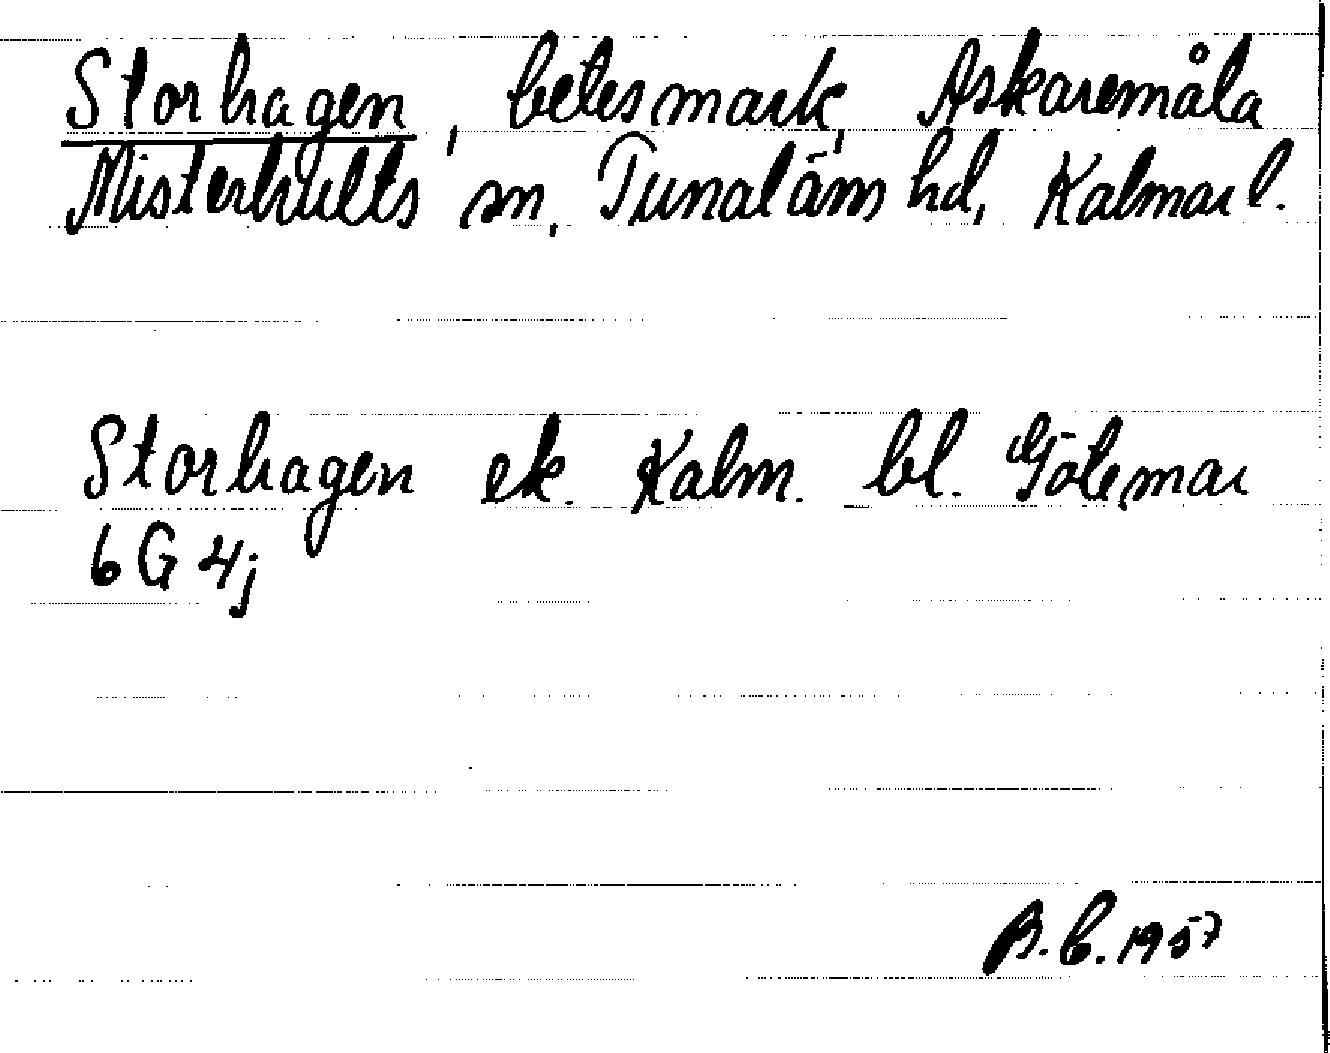 Storhagen, betesmark, Askaremåla
Misterhults sn, Tunaläns hd, Kalmar l.
Storhagen ek. Kalm. bl. Götemar
6 G 4j
B.C. 1957